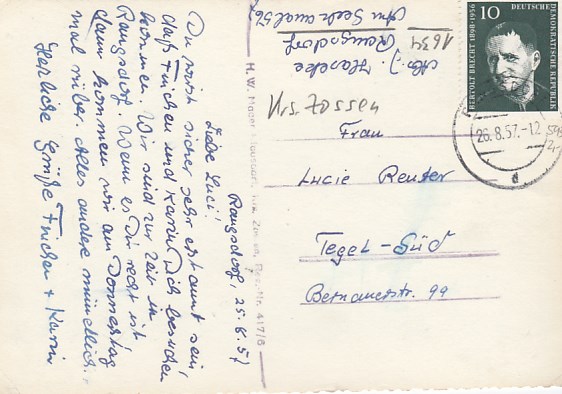 Rangsdorf, 25.8.57
Liebe Luci!
Du wirst sicher sehr erstaunt sein,
daß Finchen und Karin Dich besuchen
kommen. Wir sind zur Zeit in
Rangsdorf. Wenn es Dir recht ist
dann kommen wir am Donnerstag
mal rüber. Alles andere mündlich.
Herzliche Grüße Finchen + Karin
H. W.
Nr. 417/8
Haseke
Rangsdorf
1634
Am Seekanal 56
10
DEUTSCHE
DEMOKRATISCHE REPUBLIK
BERTOLT BRECHT 1898-1956
26.8.57.-12
d
Frau
Lucie Reuter
Tegel-Süd
Bernauerstr. 99